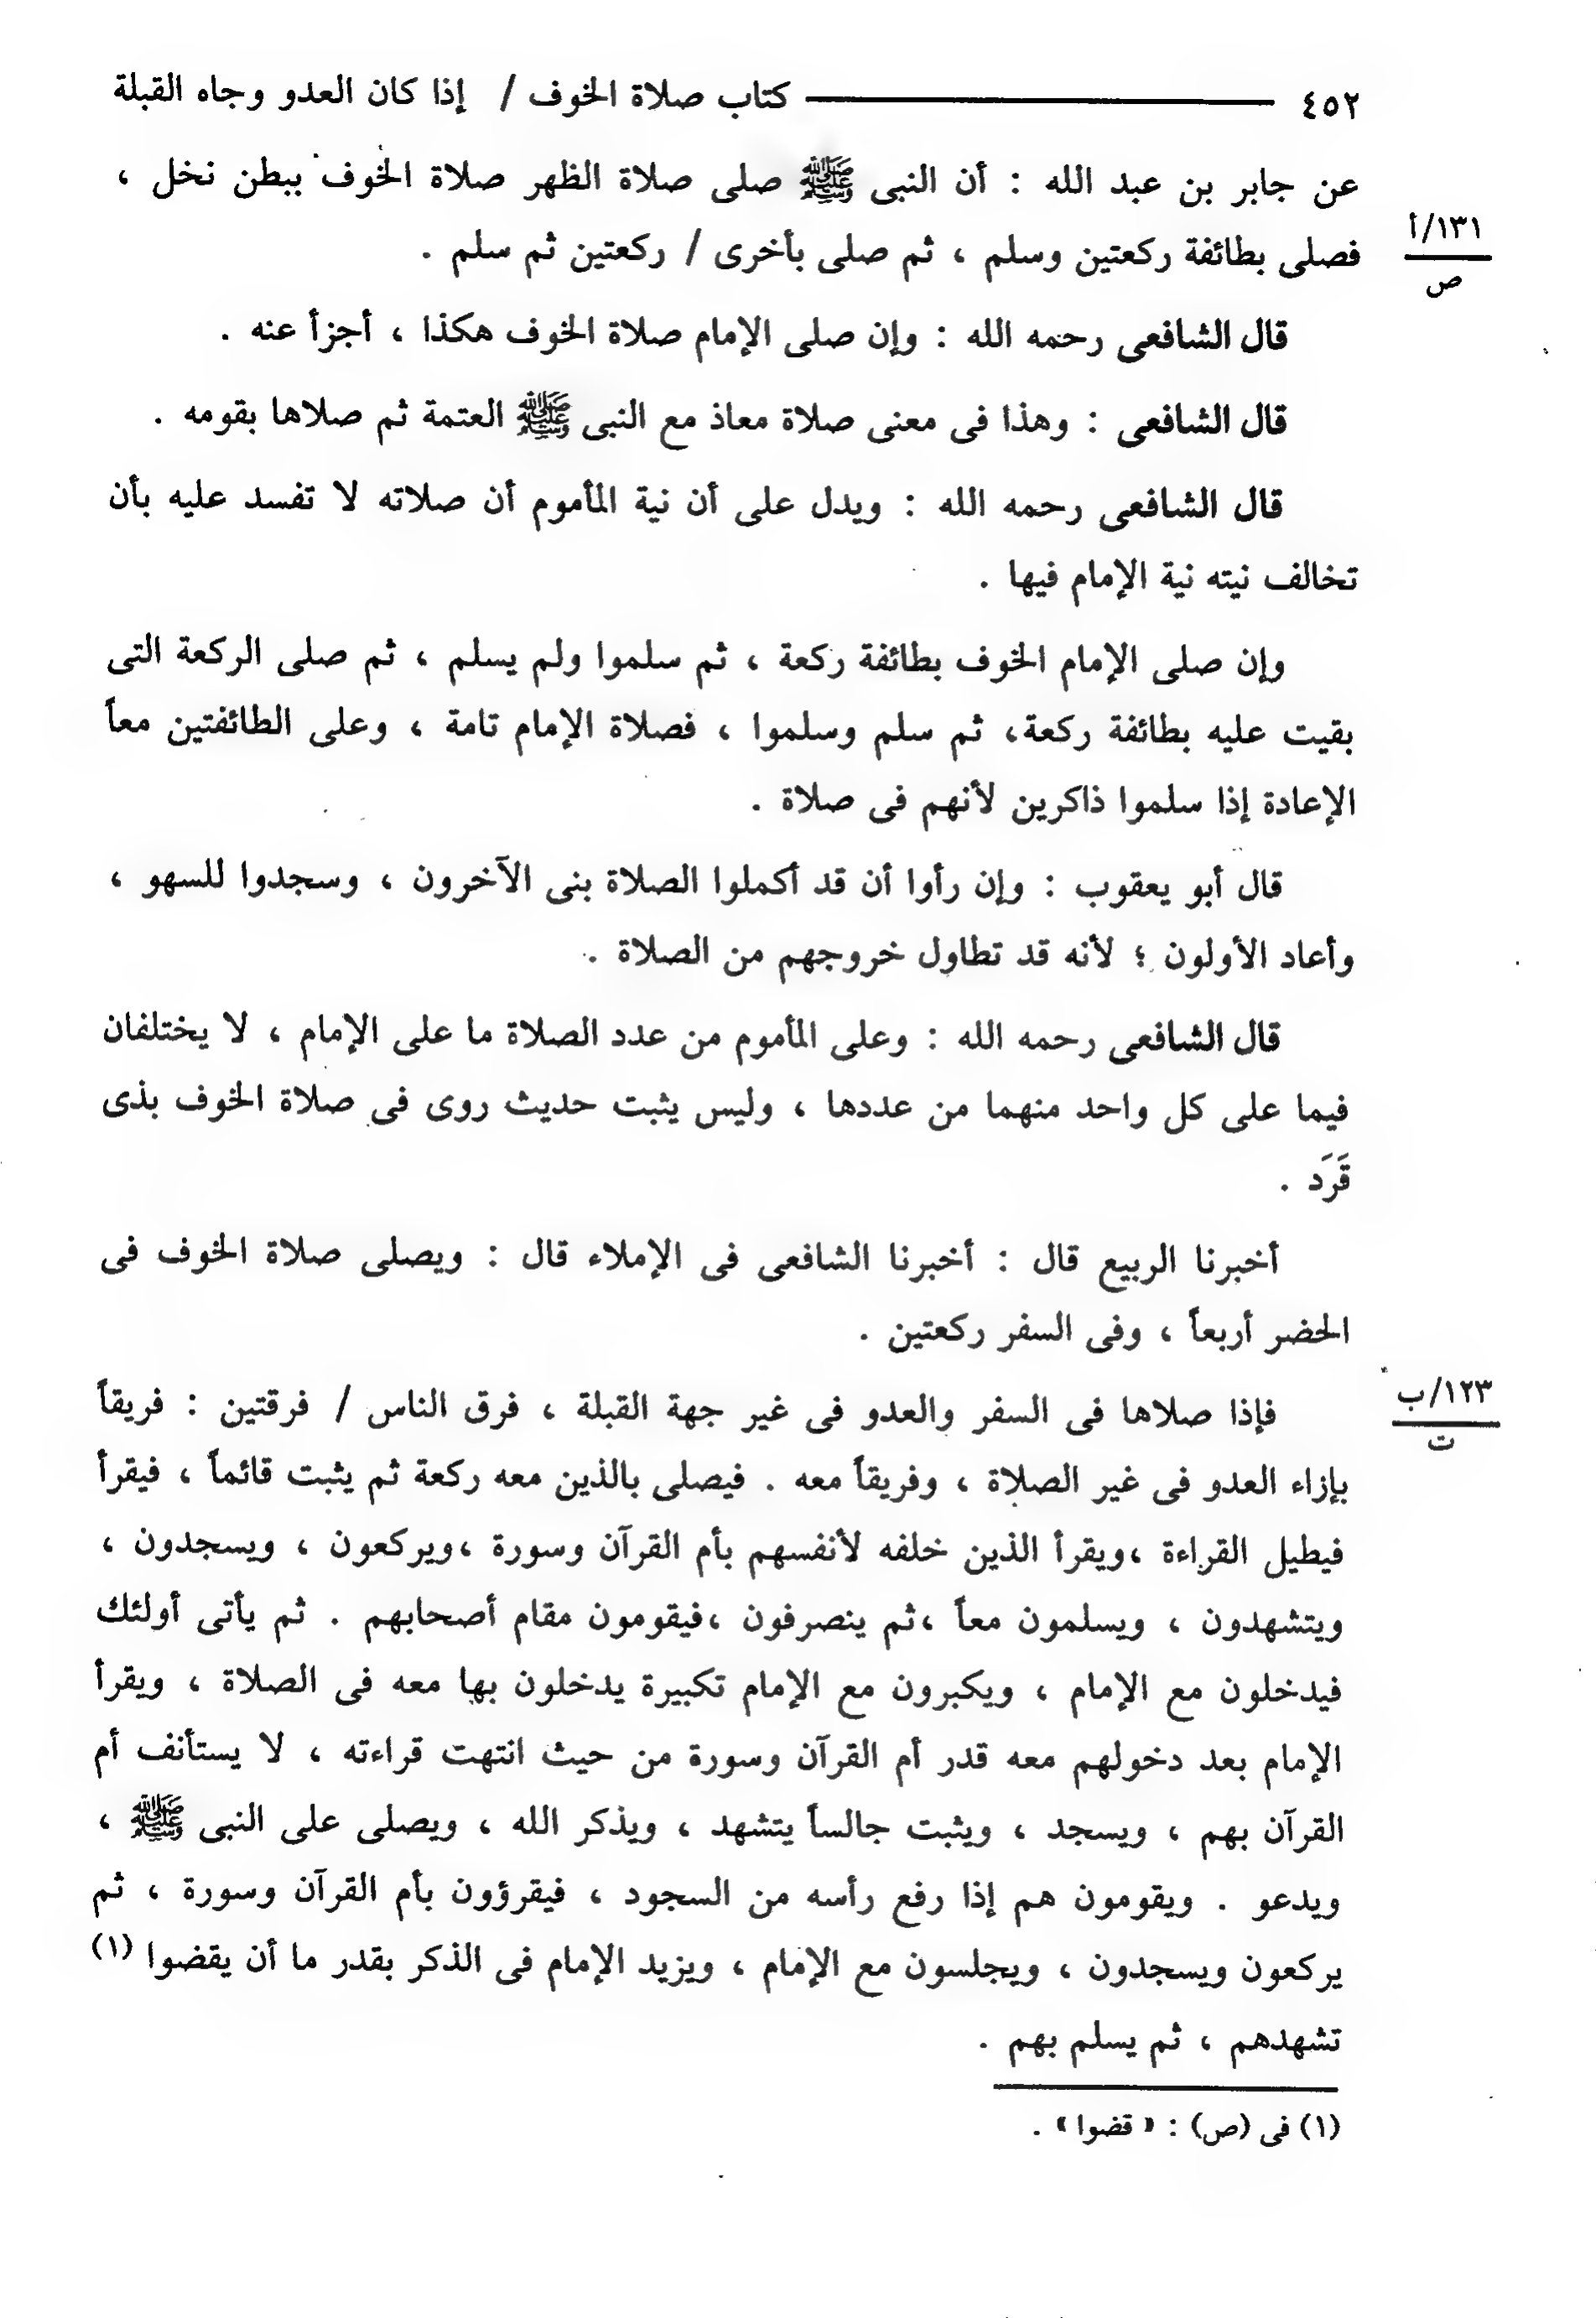 ٤٥٢ ــــــــــــــــــ كتاب صلاة الخوف / إذا كان العدو وجاه القبلة
عن جابر بن عبد الله : أن النبى ﷺ صلى صلاة الظهر صلاة الخوف ببطن نخل ،
١٣١/أ
ص
فصلى بطائفة ركعتين وسلم ، ثم صلى بأخرى / ركعتين ثم سلم .
قال الشافعى رحمه الله : وإن صلى الإمام صلاة الخوف هكذا ، أجزأ عنه .
قال الشافعى : وهذا فى معنى صلاة معاذ مع النبى ﷺ العتمة ثم صلاها بقومه .
قال الشافعى رحمه الله : ويدل على أن نية المأموم أن صلاته لا تفسد عليه بأن
تخالف نيته نية الإمام فيها .
وإن صلى الإمام الخوف بطائفة ركعة ، ثم سلموا ولم يسلم ، ثم صلى الركعة التى
بقيت عليه بطائفة ركعة، ثم سلم وسلموا ، فصلاة الإمام تامة ، وعلى الطائفتين معاً
الإعادة إذا سلموا ذاكرين لأنهم فى صلاة .
قال أبو يعقوب : وإن رأوا أن قد أكملوا الصلاة بنى الآخرون ، وسجدوا للسهو ،
وأعاد الأولون ؛ لأنه قد تطاول خروجهم من الصلاة .
قال الشافعى رحمه الله : وعلى المأموم من عدد الصلاة ما على الإمام ، لا يختلفان
فيما على كل واحد منهما من عددها ، وليس يثبت حديث روى فى صلاة الخوف بذى
قَرَد .
أخبرنا الربيع قال : أخبرنا الشافعى فى الإملاء قال : ويصلى صلاة الخوف فى
الحضر أربعاً ، وفى السفر ركعتين .
١٢٣/ب
ت
فإذا صلاها فى السفر والعدو فى غير جهة القبلة ، فرق الناس / فرقتين : فريقاً
بإزاء العدو فى غير الصلاة ، وفريقاً معه . فيصلى بالذين معه ركعة ثم يثبت قائماً ، فيقرأ
فيطيل القراءة ،ويقرأ الذين خلفه لأنفسهم بأم القرآن وسورة ،ويركعون ، ويسجدون ،
ويتشهدون ، ويسلمون معاً ،ثم ينصرفون ،فيقومون مقام أصحابهم . ثم يأتى أولئك
فيدخلون مع الإمام ، ويكبرون مع الإمام تكبيرة يدخلون بها معه فى الصلاة ، ويقرأ
الإمام بعد دخولهم معه قدر أم القرآن وسورة من حيث انتهت قراءته ، لا يستأنف أم
القرآن بهم ، ويسجد ، ويثبت جالساً يتشهد ، ويذكر الله ، ويصلى على النبى ﷺ ،
ويدعو . ويقومون هم إذا رفع رأسه من السجود ، فيقرؤون بأم القرآن وسورة ، ثم
يركعون ويسجدون ، ويجلسون مع الإمام ، ويزيد الإمام فى الذكر بقدر ما أن يقضوا (١)
تشهدهم ، ثم يسلم بهم .
(١) فى (ص) : « قضوا » .